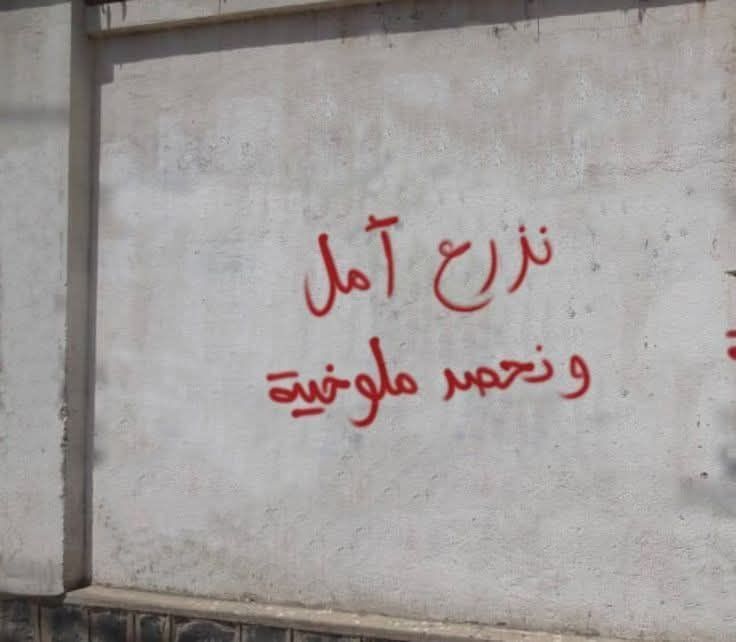 نذرع آمل
ونحصد ملوخية